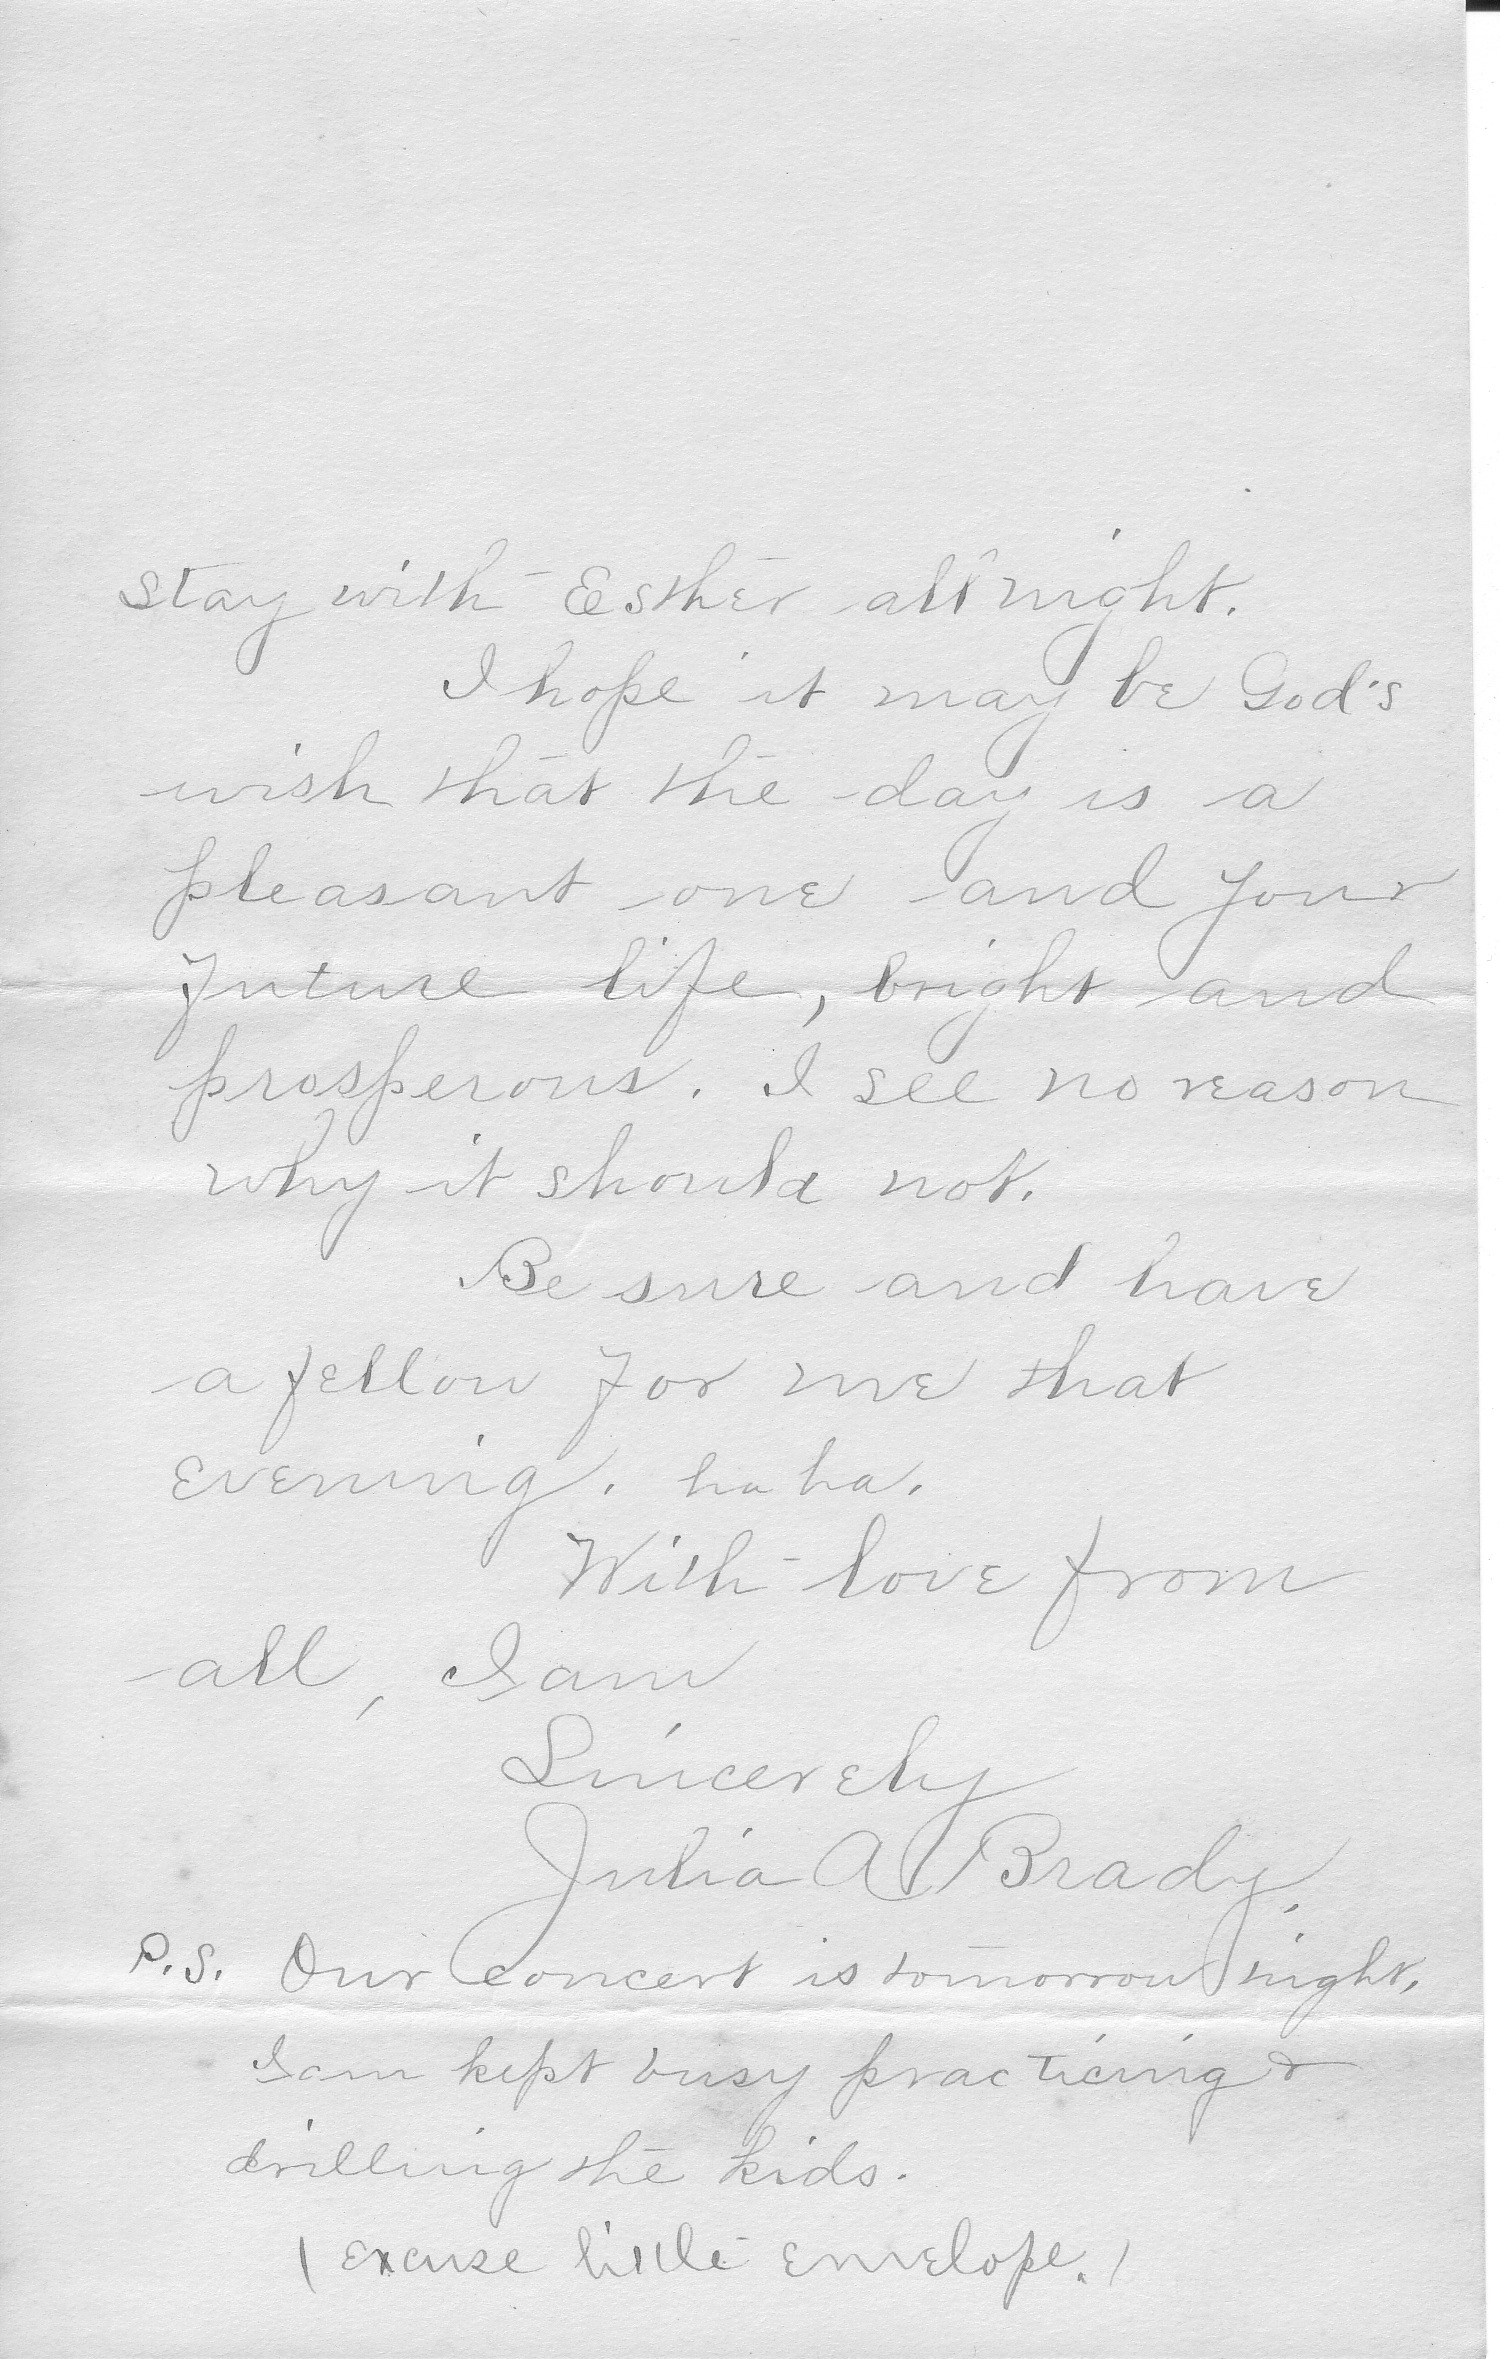 stay with Esther all night.
I hope it may be God's
wish that the day is a
pleasant one and your
future life, bright and
prosperous. I see no reason
why it should not.
Be sure and have
a fellow for me that
evening. ha ha.
With love from
all, I am
Sincerely
Julia A Brady.
P.S. Our concert is tomorrow night,
I am kept busy practicing &
drilling the kids.
(excuse little envelope.)